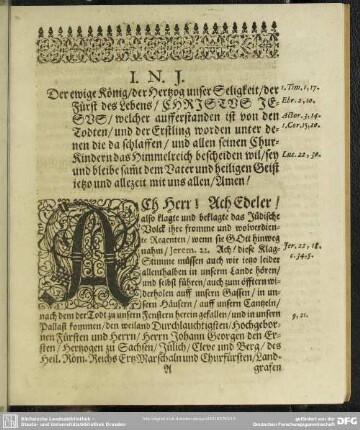 I. N. J.
Der ewige König/der Hertzog unser Seligkeit/der
Fürst des Lebens/ CHRISTVS JE-
SVS/ welcher aufferstanden ist von den
Todten/ und der Erstling worden unter de-
nen die da schlaffen/ und allen seinen Chur-
Kindern das Himmelreich bescheiden wil/sey
und bleibe samt dem Vater und heiligen Geist
ietzo und allezeit mit uns allen/Amen/
1. Tim. 1, 17.
Ebr. 2, 10.
Actor. 3, 14.
1. Cor. 15, 20.
Luc. 22, 30.
ACh Herr! Ach Edeler/
also klagte und beklagte das Jüdische
Volck ihre fromme und wolverdien-
te Regenten/ wenn sie GOtt hinweg
nahm/ Jerem. 22. Ach/ diese Klag-
Stimme müssen auch wir ietzo leider
allenthalben in unserm Lande hören/
und selbst führen/auch zum öfftern wi-
derholen auff unsern Gassen/ in un-
sern Häusern/ auff unsern Cantzeln/
nach dem der Todt zu unsern Fenstern herein gefallen/und in unsern
Pallast kommen/den weiland Durchlauchtigsten/Hochgebor-
nen Fürsten und Herrn/ Herrn Johann Georgen den Er-
sten/ Hertzogen zu Sachsen/ Jülich/ Cleve und Berg/ des
Heil. Röm. Reichs ErtzMarschaln und Churfürsten/Land-
Jer. 22, 18.
9, 21.
A
grafen
Sächsische Landesbibliothek
Staats- und Universitätsbibliothek Dresden
gefördert von der
Deutschen Forschungsgemeinschaft
DFG